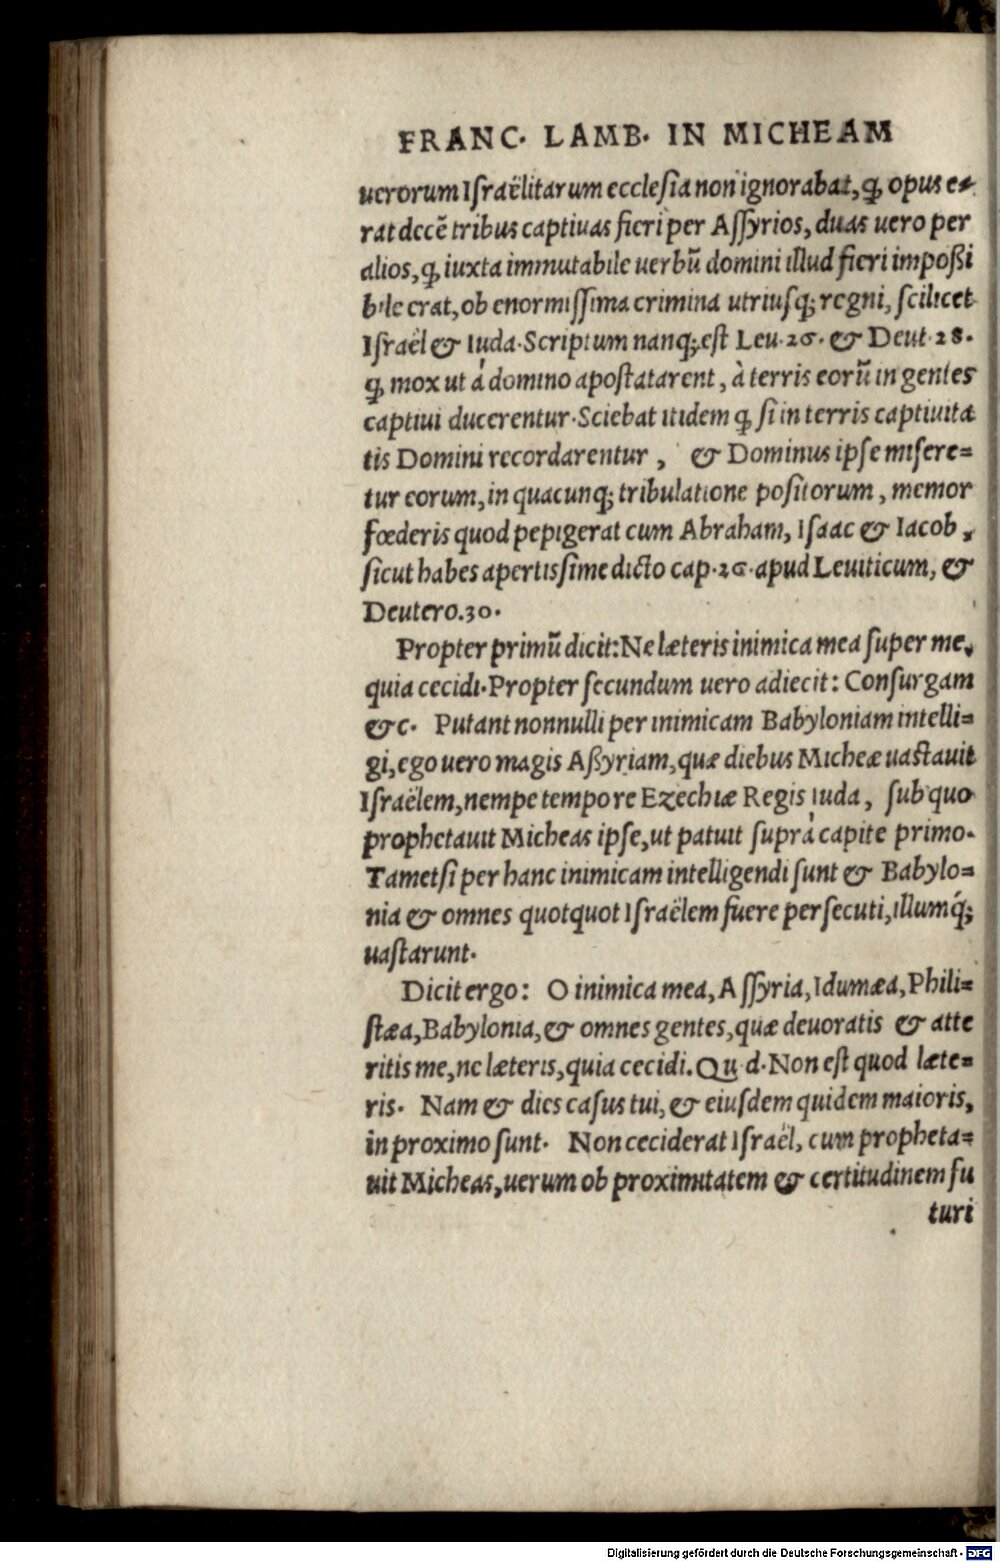 FRANC. LAMB. IN MICHEAM
uerorum Iſraëlitarum eccleſia non ignorabat, ꝙ opus e=
rat decē tribus captiuas fieri per Aſſyrios, duas uero per
alios, ꝙ iuxta immutabile uerbū domini illud fieri impoßi
bile erat, ob enormiſſima crimina utriuſq; regni, ſcilicet
Iſraël & Iuda. Scriptum nanq; eſt Leu. 26. & Deut. 28.
ꝙ mox ut à domino apoſtatarent, à terris eorū in gentes
captiui ducerentur. Sciebat itidem ꝙ ſi in terris captiuita
tis Domini recordarentur, & Dominus ipſe miſere=
tur eorum, in quacunq; tribulatione poſitorum, memor
fœderis quod pepigerat cum Abraham, Iſaac & Iacob,
ſicut habes apertisſime dicto cap. 26. apud Leuiticum, &
Deutero. 30.
Propter primū dicit: Ne læteris inimica mea ſuper me,
quia cecidi. Propter ſecundum uero adiecit: Conſurgam
&c. Putant nonnulli per inimicam Babyloniam intelli=
gi, ego uero magis Aßyriam, quæ diebus Micheæ uaſtauit
Iſraëlem, nempe tempore Ezechiæ Regis Iuda, ſub quo
prophetauit Micheas ipſe, ut patuit ſuprà capite primo.
Tametſi per hanc inimicam intelligendi ſunt & Babylo=
nia & omnes quotquot Iſraëlem fuere perſecuti, illumq́;
uaſtarunt.
Dicit ergo: O inimica mea, Aſſyria, Idumæa, Phili=
ſtæa, Babylonia, & omnes gentes, quæ deuoratis & atte
ritis me, ne læteris, quia cecidi. Qu. d. Non eſt quod læte=
ris. Nam & dies caſus tui, & eiuſdem quidem maioris,
in proximo ſunt. Non ceciderat Iſraël, cum propheta=
uit Micheas, uerum ob proximitatem & certitudinem fu
turi
Digitalisierung gefördert durch die Deutsche Forschungsgemeinschaft - DFG